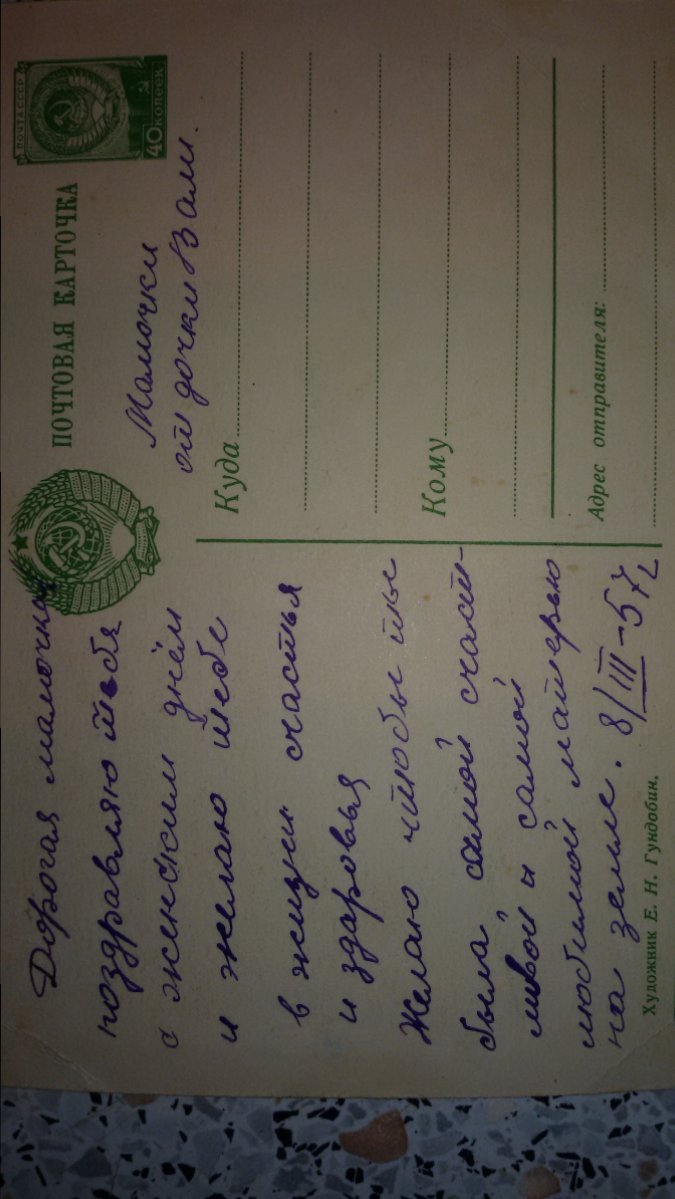 Дорогая мамочка
поздравляю тебя
с женским днём
и желаю тебе
в жизни счастья
и здаровья
Желаю чтобы ты
была самой счаст-
ливой и самой
любимой матерью
на земле. 8/III-57г
Художник Е. Н. Гундобин.
ПОЧТОВАЯ КАРТОЧКА
ПОЧТА СССР
40 КОПЕЕК
Мамочки
от дочки Вали.
Куда
Кому
Адрес отправителя: